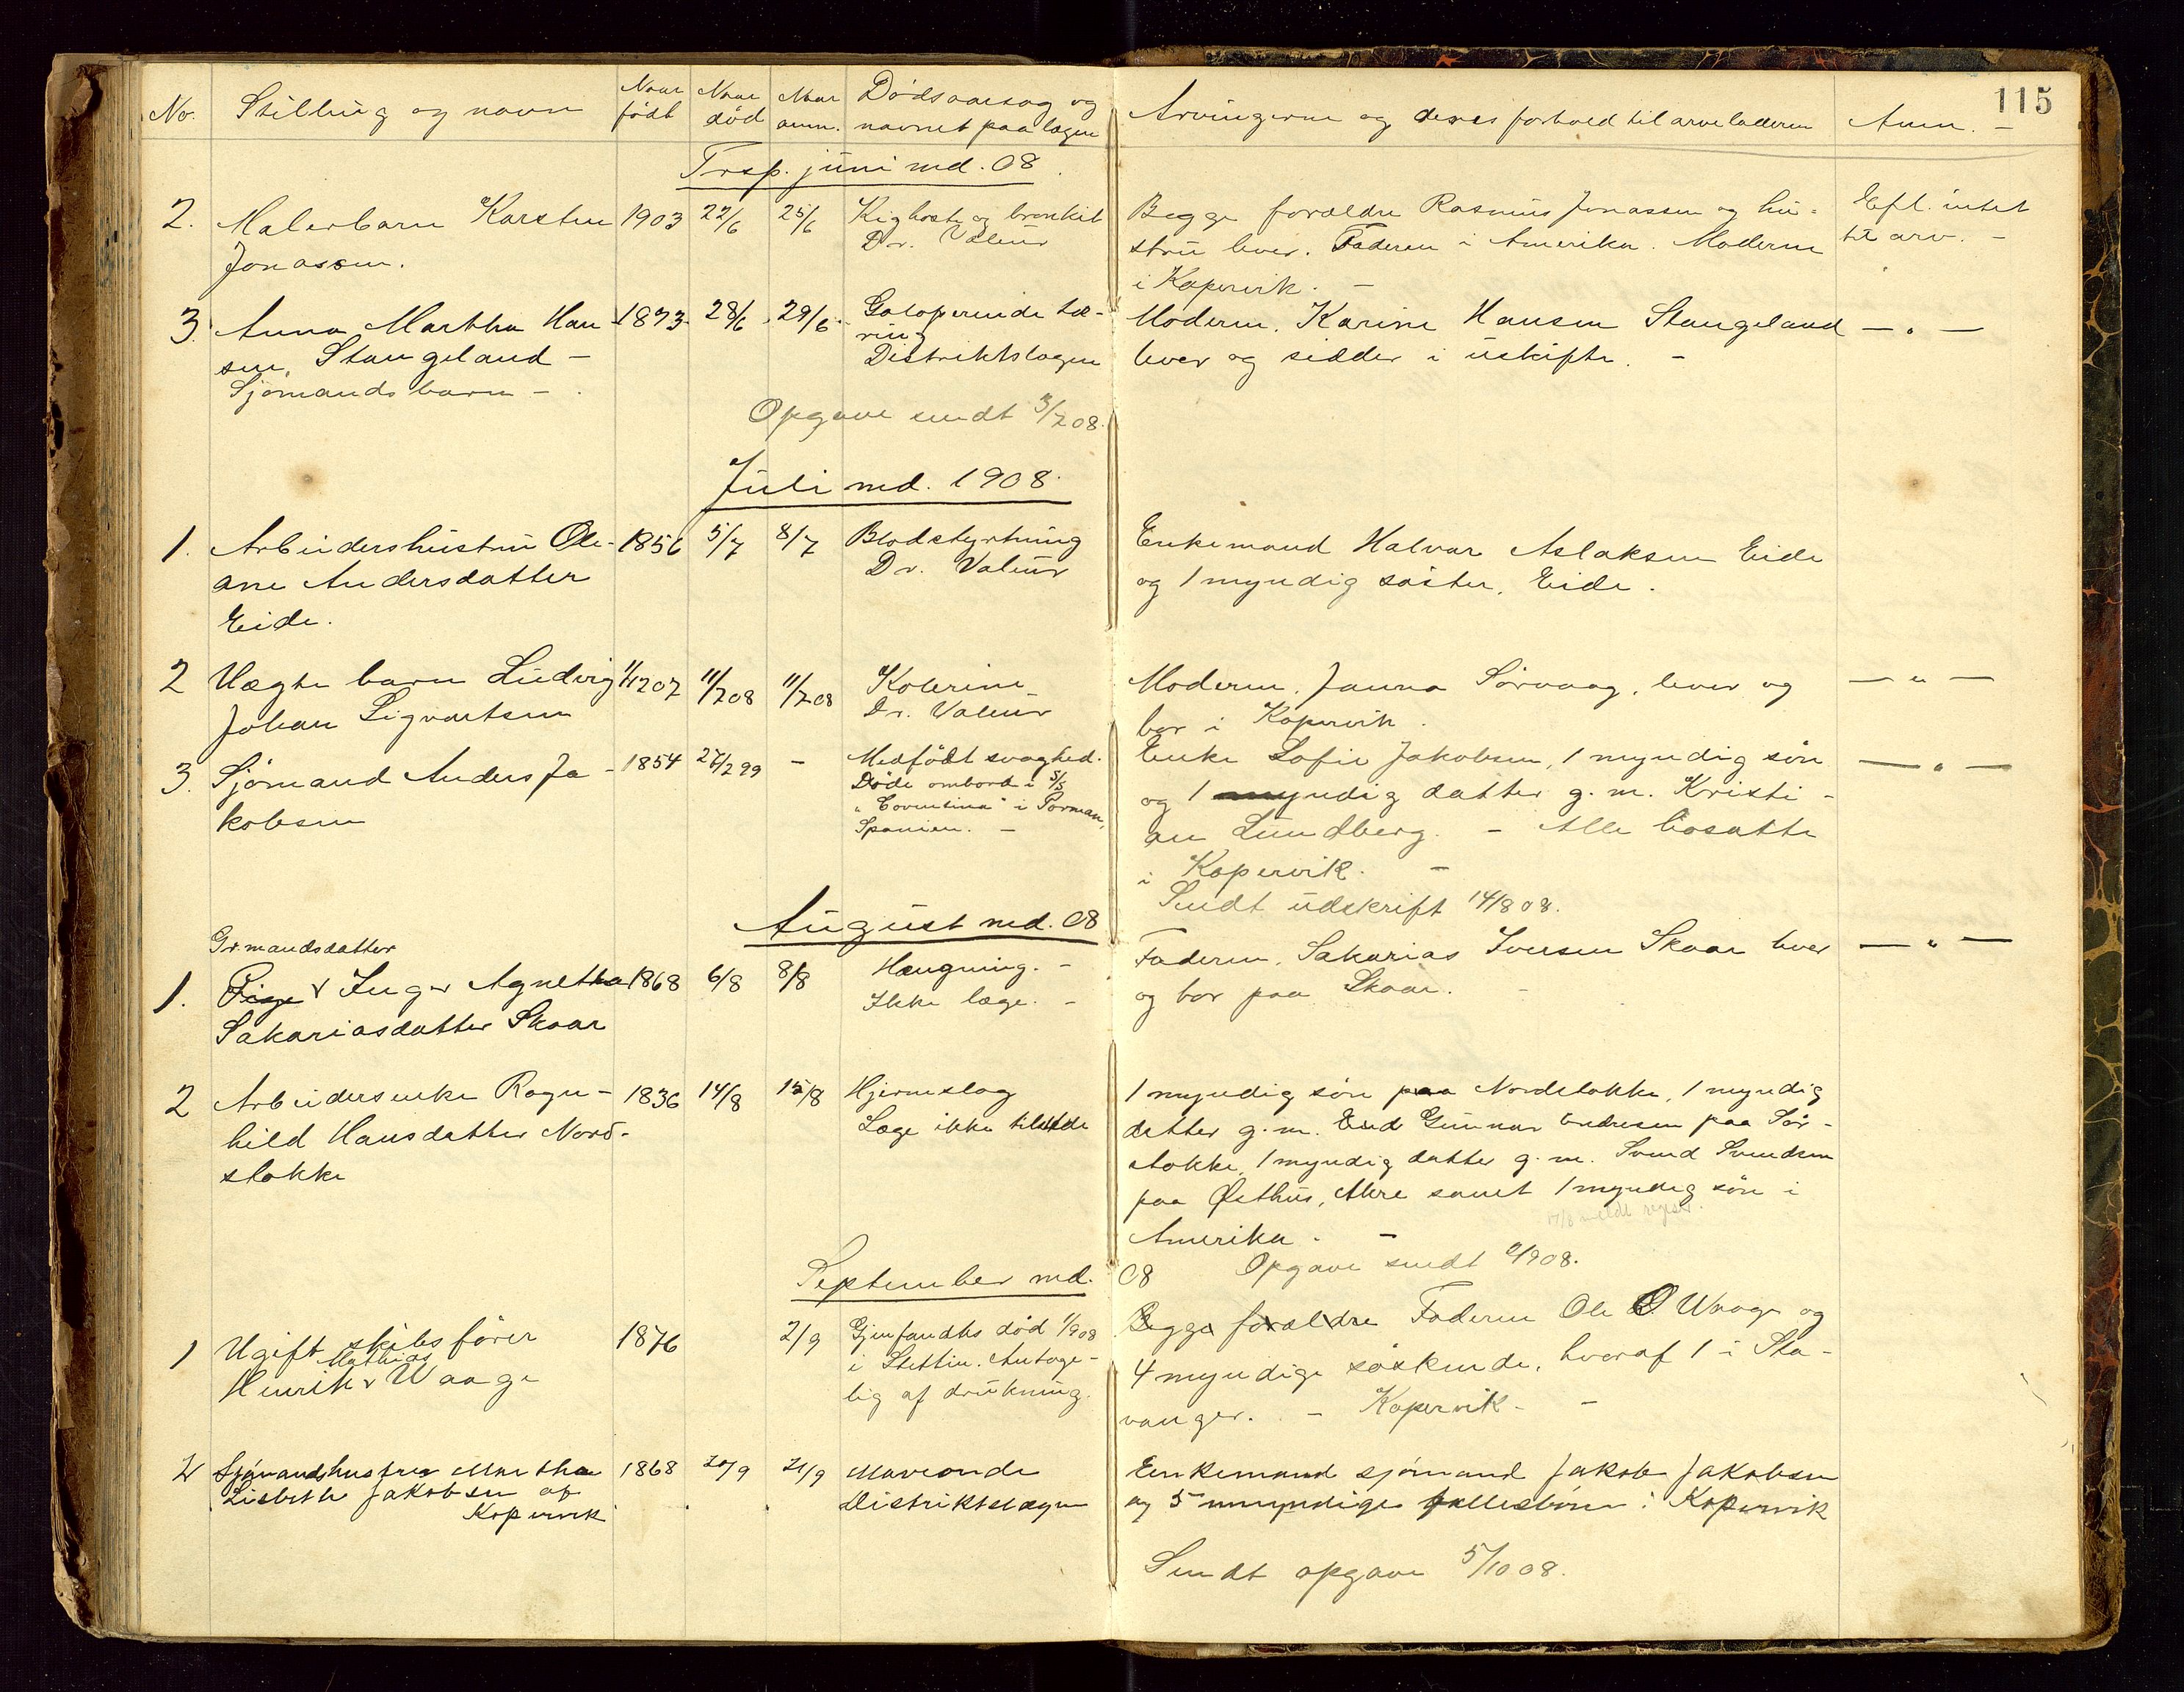 115
No. Stilling og navn Naar født Naar død Naar anm. Dødsaarsag og navnet paa lægen Arvingerne og deres forhold til arveladeren Anm. -
Trsp. juni md. 08
2. Malerbarn Karsten 1903 22/6 25/6 Kighoste og bronkit Begge forældre Rasmus Jonassen og hu- Efl. intet
Jonassen. Dr. Valeur stru lever. Faderen i Amerika. Moderen til arv. -
i Kopervik. -
3. Anna Martha Han- 1873 28/6 29/6 Galoperende tæ- Moderen, Karine Hansen Stangeland — " —
sen, Stangeland - ring lever og sidder i uskifte. -
Sjømandsbarn - Distriktslægen
Opgave sendt 3/7 08.
Juli md. 1908.
1. Arbeidershustru Ole- 1856 5/7 8/7 Blodstyrtning Enkemand Halvar Aslaksen Eide
ane Andersdatter Dr. Valeur og 1 myndig søster, Eide.
Eide.
2 Uægte barn Ludvig 1/12 07 11/7 08 11/7 08 Kolerine - Moderen, Janna Sørvaag, lever og — " —
Johan Sigvartsen Dr. Valeur bor i Kopervik.
3. Sjømand Anders Ja- 1854 27/2 99 - Medfødt svaghed. Enke Sofie Jakobsen, 1 myndig søn — " —
kobsen Døde ombord i S/S og 1 myndig datter g. m. Kristi-
"Coventina" i Porman, an Lundberg. - Alle bosatte
Spanien. - i Kopervik. -
Sendt udskrift 14/8 08.
August md. 08
Grmandsdatter
1. Pige v Inger Agnetha 1868 6/8 8/8 Hængning. - Faderen, Sakarias Iversen Skaar lever — " —
Sakariasdatter Skaar Ikke læge. - og bor paa Skaar. -
2 Arbeidersenke Ragn- 1836 14/8 15/8 Hjerneslag 1 myndig søn paa Nordstokke, 1 myndig
hild Hansdatter Nord- Læge ikke tilstede datter g. m. Gunnar Endresen paa Sør-
stokke stokke, 1 myndig datter g. m. Svend Svendsen
paa Østhus, Akre samt 1 myndig søn i
17/8 meldt
Amerika. -
Opgave sendt 2/9 08.
September md. 08
1 Ugift skibsfører 1876 2/9 Gjenfandtes død 1/9 08 Begge forældre Faderen Ole O Waage og
Henrik v Mathias Waage i Stettin. Antage- 4 myndige søskende, hvoraf 1 i Sta-
lig af drukning. vanger. - Kopervik - -
2 Sjømandshustru Martha 1868 20/9 21/9 Maveonde Enkemand sjømand Jakob Jakobsen
Lisbeth Jakobsen af Distriktslægen og 5 umyndige fællesbørn i Kopervik
Kopervik
Sendt opgave 5/10 08.